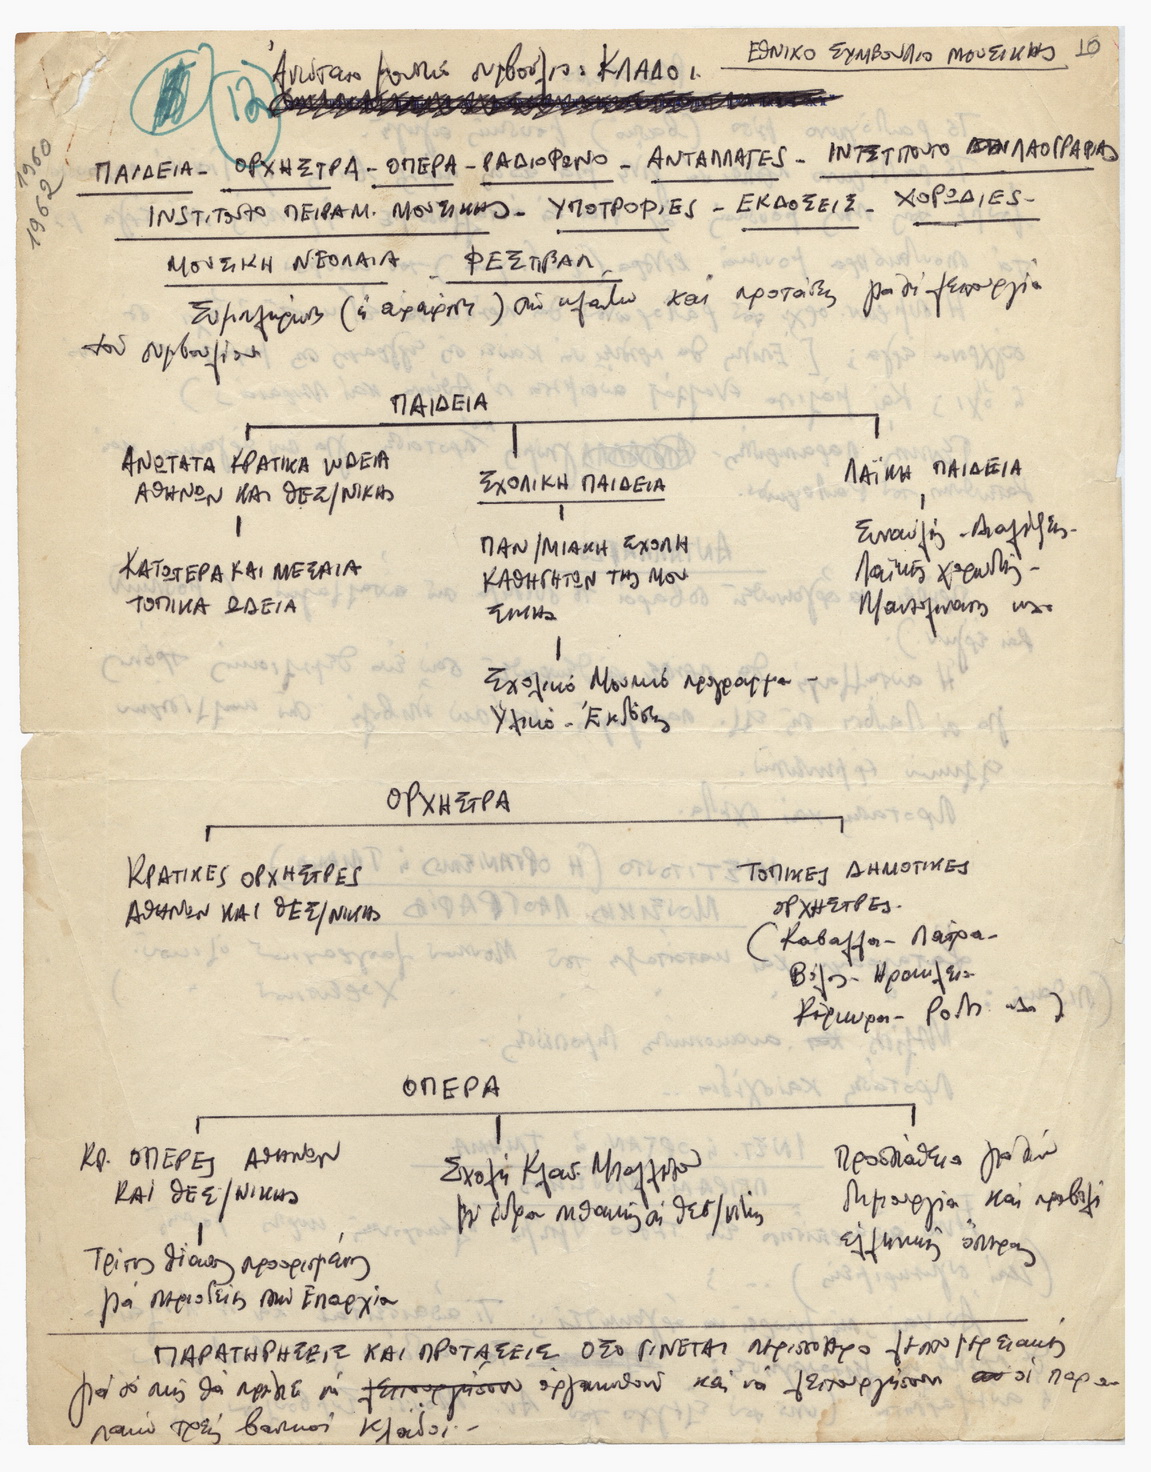 ΕΘΝΙΚΟ ΣΥΜΒΟΥΛΙΟ ΜΟΥΣΙΚΗΣ 10
12
Ἀνώτατο μουσικό συμβούλιο: ΚΛΑΔΟΙ.
1960
1962
ΠΑΙΔΕΙΑ - ΟΡΧΗΣΤΡΑ - ΟΠΕΡΑ - ΡΑΔΙΟΦΩΝΟ - ΑΝΤΑΛΛΑΓΕΣ - ΙΝΣΤΙΤΟΥΤΟ ΛΑΟΓΡΑΦΙΑΣ
INSTΙΤΟΥΤΟ ΠΕΙΡΑΜ. ΜΟΥΣΙΚΗΣ - ΥΠΟΤΡΟΦΙΕΣ - ΕΚΔΟΣΕΙΣ - ΧΟΡΩΔΙΕΣ -
ΜΟΥΣΙΚΗ ΝΕΟΛΑΙΑ - ΦΕΣΤΙΒΑΛ.
Συμπλήρωση (ἤ ἀφαίρεση) τῶν κλάδων καί προτάσεις γιά τή λειτουργία
τοῦ συμβουλίου
ΠΑΙΔΕΙΑ
ΑΝΩΤΑΤΑ ΚΡΑΤΙΚΑ ΩΔΕΙΑ
ΑΘΗΝΩΝ ΚΑΙ ΘΕΣ/ΝΙΚΗΣ
ΚΑΤΩΤΕΡΑ ΚΑΙ ΜΕΣΑΙΑ
ΤΟΠΙΚΑ ΩΔΕΙΑ
ΣΧΟΛΙΚΗ ΠΑΙΔΕΙΑ
ΠΑΝ/ΜΙΑΚΗ ΣΧΟΛΗ
ΚΑΘΗΓΗΤΩΝ ΤΗΣ ΜΟΥ
ΣΙΚΗΣ
Σχολικό Μουσικό πρόγραμμα -
Ὑλικό - Ἐκδόσεις
ΛΑΪΚΗ ΠΑΙΔΕΙΑ
Συναυλίες - Διαλέξεις -
Λαϊκές χορωδίες -
Μαντολινάτες κλπ
ΟΡΧΗΣΤΡΑ
ΚΡΑΤΙΚΕΣ ΟΡΧΗΣΤΡΕΣ
ΑΘΗΝΩΝ ΚΑΙ ΘΕΣ/ΝΙΚΗΣ
ΤΟΠΙΚΕΣ ΔΗΜΟΤΙΚΕΣ
ΟΡΧΗΣΤΡΕΣ -
(Καβάλλα - Πάτρα -
Βόλος - Ηράκλειο
Κέρκυρα - Ρόδος κλπ)
ΟΠΕΡΑ
ΚΡ. ΟΠΕΡΕΣ ΑΘΗΝΩΝ
ΚΑΙ ΘΕΣ/ΝΙΚΗΣ
Τρίτος θίασος προορισμένος
γιά περιοδείες στήν Ἐπαρχία
Σχολή Κλασ. Μπαλλέτου
μέ ἕδρα πιθανῶς τή Θεσ/νίκη
Προσπάθεια γιά τήν
δημιουργία καί προβολή
ἑλληνικῆς ὄπερας
ΠΑΡΑΤΗΡΗΣΕΙΣ ΚΑΙ ΠΡΟΤΑΣΕΙΣ ΟΣΟ ΓΙΝΕΤΑΙ περισσότερο λεπτομερειακές
γιά τό πῶς θά πρέπει νά λειτουργήσουν ὀργανωθοῦν καί νά λειτουργήσουν οἱ παρα
πάνω τρεῖς βασικοί κλάδοι. -